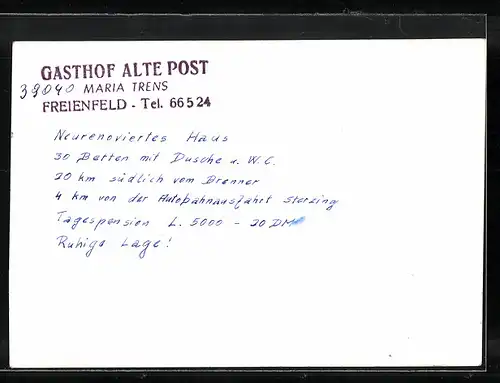 GASTHOF ALTE POST
39040 MARIA TRENS
FREIENFELD - Tel. 66524
Neurenoviertes Haus
30 Betten mit Dusche u. W.C.
20 km südlich vom Brenner
4 km von der Autobahnausfahrt Sterzing
Tagespension L. 5000 - 20 DM
Ruhige Lage!